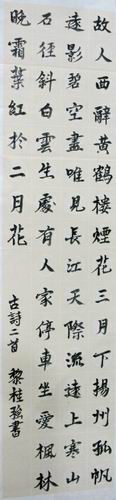 故人西辭黃鶴樓煙花三月下揚州孤帆
遠影碧空盡唯見長江天際流遠上寒山
石徑斜白雲生處有人家停車坐愛楓林
晚霜葉紅於二月花
古詩二首 黎桂强書